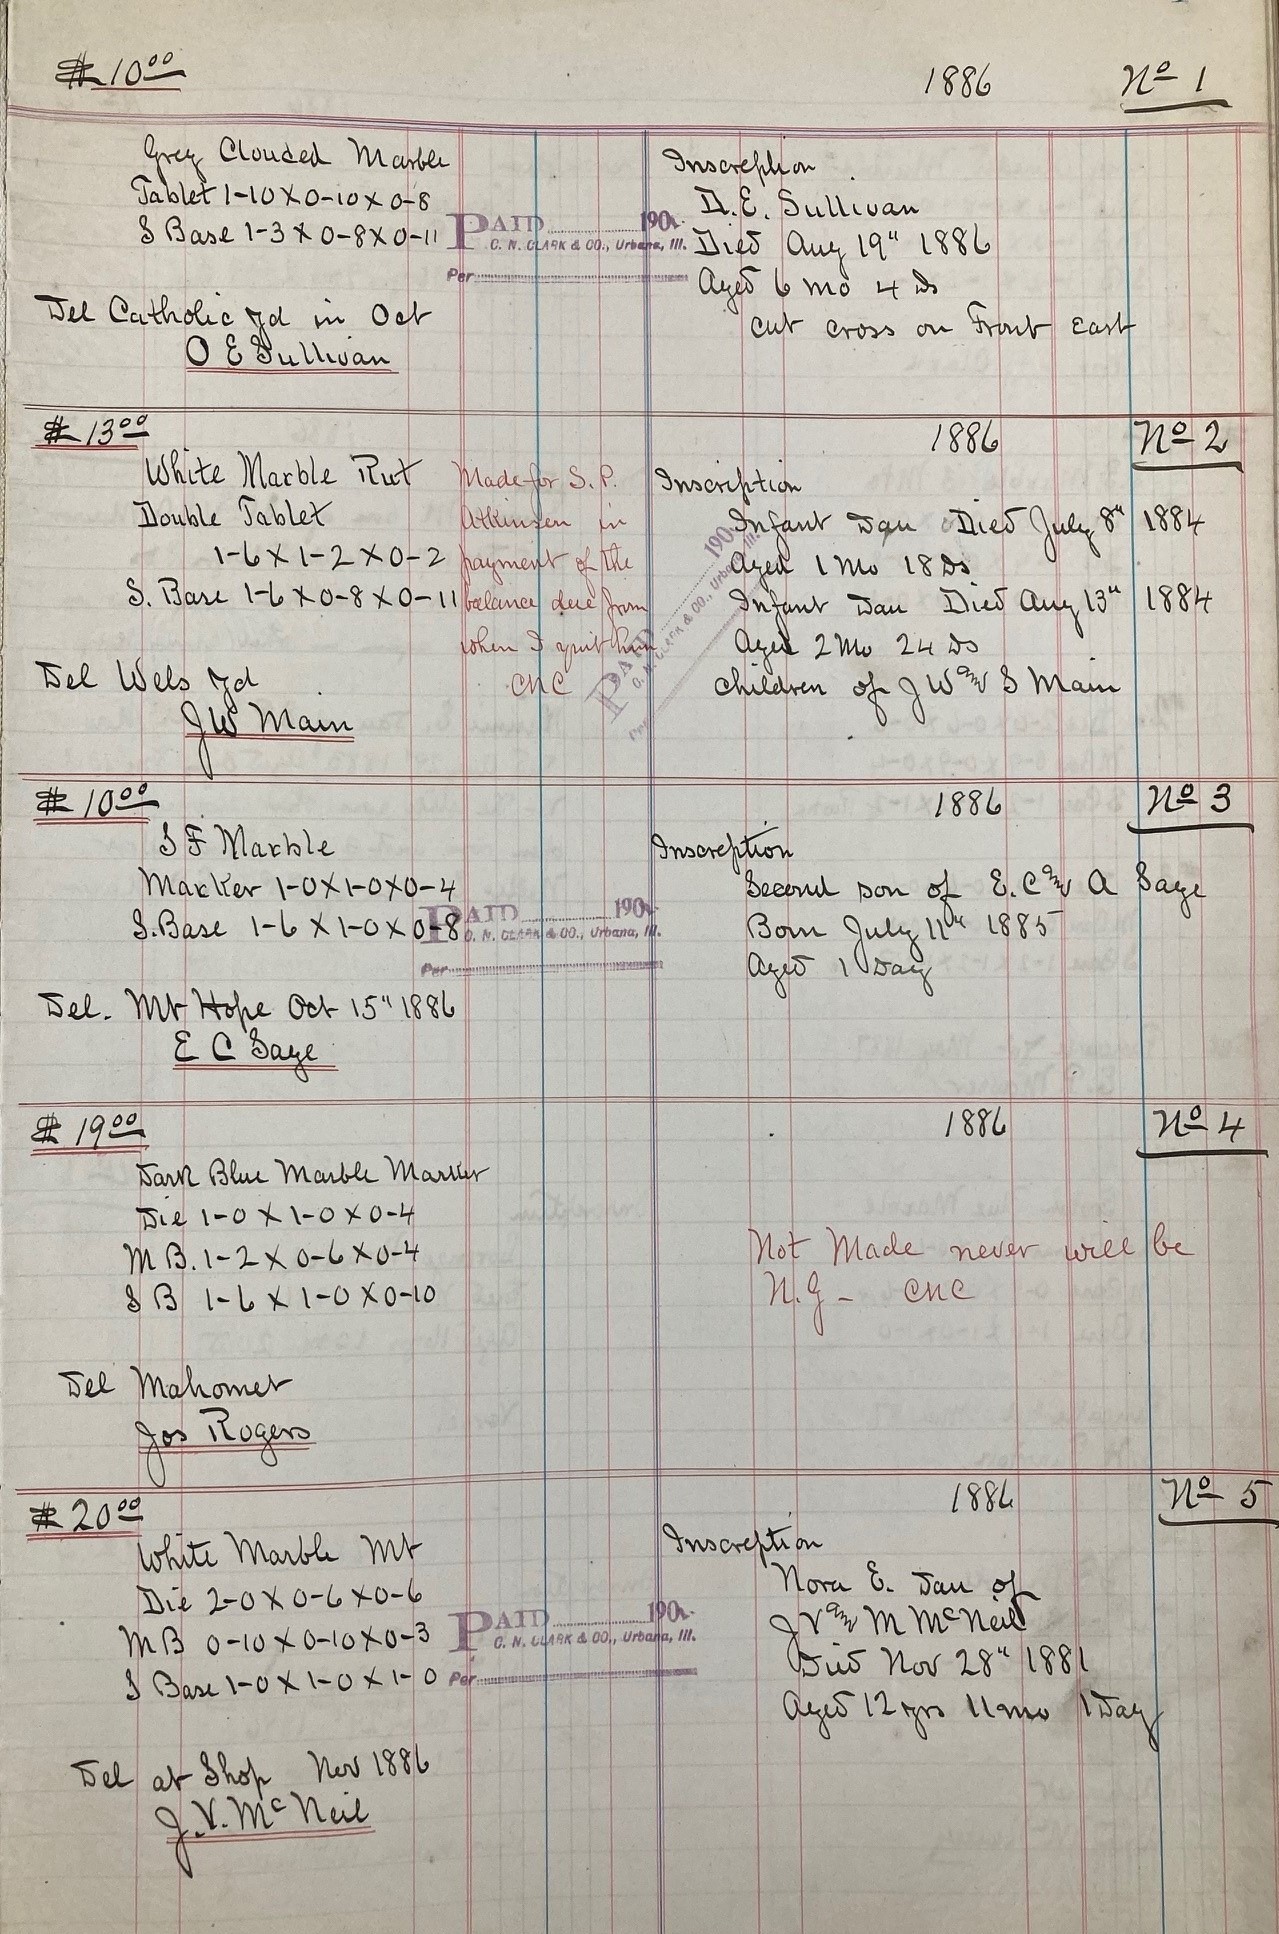 $10.00 1886 No 1
Grey Clouded Marble
Tablet 1-10 X 0-10 X 0-8
S Base 1-3 X 0-8 X 0-11
Del Catholic yd in Oct
O E Sullivan
PAID 190
C. N. CLARK & CO., Urbana, Ill.
Per
Inscreption
D. E. Sullivan
Died Aug 19" 1886
Aged 6 mo 4 Ds
cut cross on Front East
$13.00 1886 No 2
White Marble Rut
Double Tablet
1-6 X 1-2 X 0-2
S. Base 1-6 X 0-8 X 0-11
Del Wels yd
J W Main
Made for S. P.
Atkinson in
payment of the
balance due from
when I quit him
CNC
PAID 190
C. N. CLARK & CO., Urbana, Ill.
Per
Inscription
Infant Dau Died July 8" 1884
Aged 1 Mo 18 Ds
Infant Dau Died Aug 13" 1884
Aged 2 Mo 24 Ds
children of J W and S Main
$10.00 1886 No 3
S F Marble
Marker 1-0 X 1-0 X 0-4
S. Base 1-6 X 1-0 X 0-8
Del. Mt Hope Oct 15" 1886
E C Saye
PAID 190
C. N. CLARK & CO., Urbana, Ill.
Per
Inscreption
Second son of E. C and A Saye
Born July 11" 1885
Aged 1 Day
$19.00 1886 No 4
Dark Blue Marble Marker
Die 1-0 X 1-0 X 0-4
M B. 1-2 X 0-6 X 0-4
S B 1-6 X 1-0 X 0-10
Del Mahomet
Jos Rogers
Not Made never will be
N. G - CNC
$20.00 1886 No 5
White Marble Mt
Die 2-0 X 0-6 X 0-6
M B 0-10 X 0-10 X 0-3
S Base 1-0 X 1-0 X 1-0
Del at Shop Nov 1886
J. V. McNeil
PAID 190
C. N. CLARK & CO., Urbana, Ill.
Per
Inscreption
Nora E. Dau of
J V and M McNeil
Died Nov 28" 1881
Aged 12 yrs 11 mo 1 Day